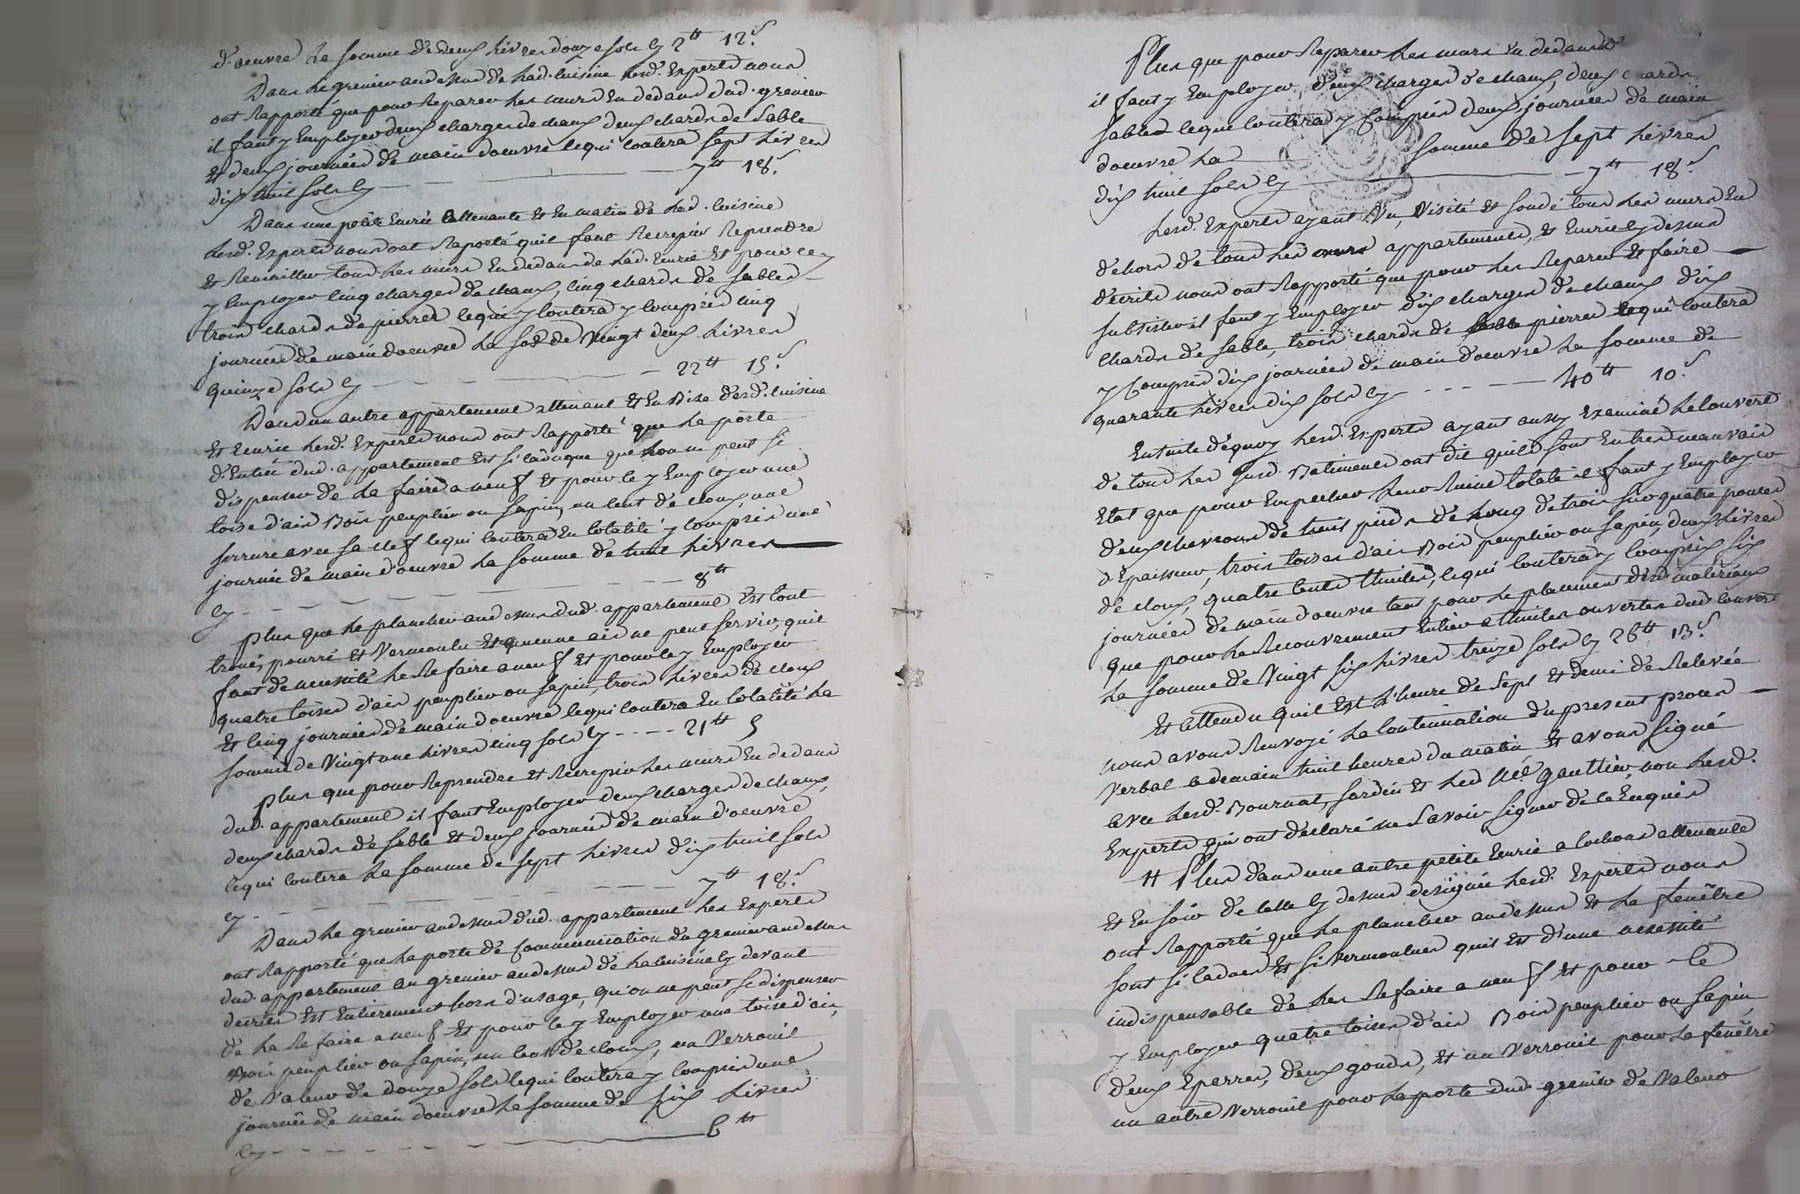 d'oeuvre La somme de deux Livres douze sols Cy 2tt 12s
Dans Le grenier audessus de Lad. Cuisine Lesd. Experts nous
ont Rapporté que pour Reparer Les murs En dedans dud. grenier
il faut y Employer deux charges de chaux deux chards de Sable
et deux journées de main doeuvre Lequi Coutera sept Livres
dix huit sols Cy 7tt 18s
Dans une petite Ecurie attenante Et En matin de Lad. Cuisine
Lesd. Experts nous ont Raporté quil faut Recrepir Reprendre
et Remailler tous Les murs En dedans de Lad. Ecurie Et pour Ce
y Employer Cinq charges de chaux, Cinq chards de Sable
trois chards de pierres Lequi y Coutera y Compris Cinq
journées de main doeuvre La so.e de Vingt deux Livres
quinze sols Cy 22tt 15s
Dans un autre appartement attenant Et En Bise desd. Cuisine
Et Ecurie Lesd. Experts nous ont Rapporté que La porte
d'Entrée dud. appartement Est si Caduque que Lon ne peut se
dispenser de La faire a neuf Et pour Ce y Employer une
toise d'ais Bois peuplier ou sapin, un Cent de cloux une
serrure avec sa Clef Lequi Coutera En totalité y Compris une
journée de main d'oeuvre La somme de huit Livres
Cy 8tt
Plus que Le plancher audessus dud. appartement Est tout
troué, pourri Et Vermoulu Et quenne ais ne peut servir, quil
faut de necessité Le Refaire a neuf Et pour Ce y Employer
quatre toises d'ais peuplier ou sapin, trois Livres de cloux
Et Cinq journées de main doeuvre Lequi Coutera En totalité La
somme de Vingt une Livres Cinq sols Cy 21tt 5
Plus que pour Reprendre et Recrepir Les murs En dedans
dud. appartement il faut Employer deux charges de chaux,
deux chards de sable et deux journées de main d'oeuvre
Lequi Coutera La somme de sept Livres dix huit sols
Cy 7tt 18s
Dans Le grenier audessus dud. appartement Les Experts
ont Rapporté que La porte de Communication du grenier audessus
dud. appartement au grenier audessus de La Cuisine Cy devant
decrite Est Entierement hors d'usage, qu'on ne peut se dispenser
de La Refaire a neuf Et pour Ce y Employer une toise d'ais,
Bois peuplier ou sapin, un Cent de cloux, un Verrouil
de Valeur de douze sols Lequi Coutera y Compris une
journée de main doeuvre La somme de six Livres
Cy 6tt
Plus que pour Reparer Les murs En dedans
il faut y Employer deux charges de chaux, deux chards
sable Lequi Coutera y Compris deux journées de main
doeuvre La somme de sept Livres
dix huit sols Cy 7tt 18s
Lesd. Experts ayant Vu, Visité et sondé tous Les murs En
dehors de tous Les appartements, et Ecuries Cy dessus
décrits nous ont Rapporté que pour Les Reparer Et faire
subsister il faut y Employer dix charges de chaux dix
chards de sable, trois chards de pierres Lequi Coutera
y Compris dix journées de main d'oeuvre La somme de
quarante Livres dix sols Cy 40tt 10s
Ensuite déquoy Lesd. Experts ayant aussy Examiné Le Couvert
de tous Les susd. Batiments ont dit quils sont En tres mauvais
Etat que pour Empecher Leur Ruine totale il faut y Employer
deux chevrons de huit pieds de Long de trois sur quatre pouces
d'Epaisseur, trois toises d'ais Bois peuplier ou sapin, deux Livres
de cloux, quatre Cents thuiles, Lequi Coutera y Compris six
journées de main doeuvre tant pour Le placement desd. matériaux
que pour Le Recouvrement Entier a thuiles ouvertes dud. Couvert
La somme de Vingt six Livres treize sols Cy 26tt 13s
Et attendu quil Est L'heure de sept Et demi de Relevée
nous avons Renvoyé La Continuation du present proces
Verbal a demain huit heures du matin Et avons signé
avec Lesd. Bournat, Sardin Et Led. Me Gauthier, non Lesd.
Experts qui ont declaré ne savoir signer de Ce Enquis
++ Plus dans une autre petite Ecurie a Cochons attenante
Et En soir de Celle Cy dessus designée Lesd. Experts nous
ont Rapporté que Le plancher audessus Et La fenêtre
sont si Cadues Et si Vermoulues quil Est d'une necessité
indispensable de Les Refaire a neuf Et pour Ce
y Employer quatre toises d'ais Bois peuplier ou sapin,
deux Eparres, deux gonds, Et un Verrouil pour La fenêtre
un autre Verrouil pour La porte dud. grenier de Valeur